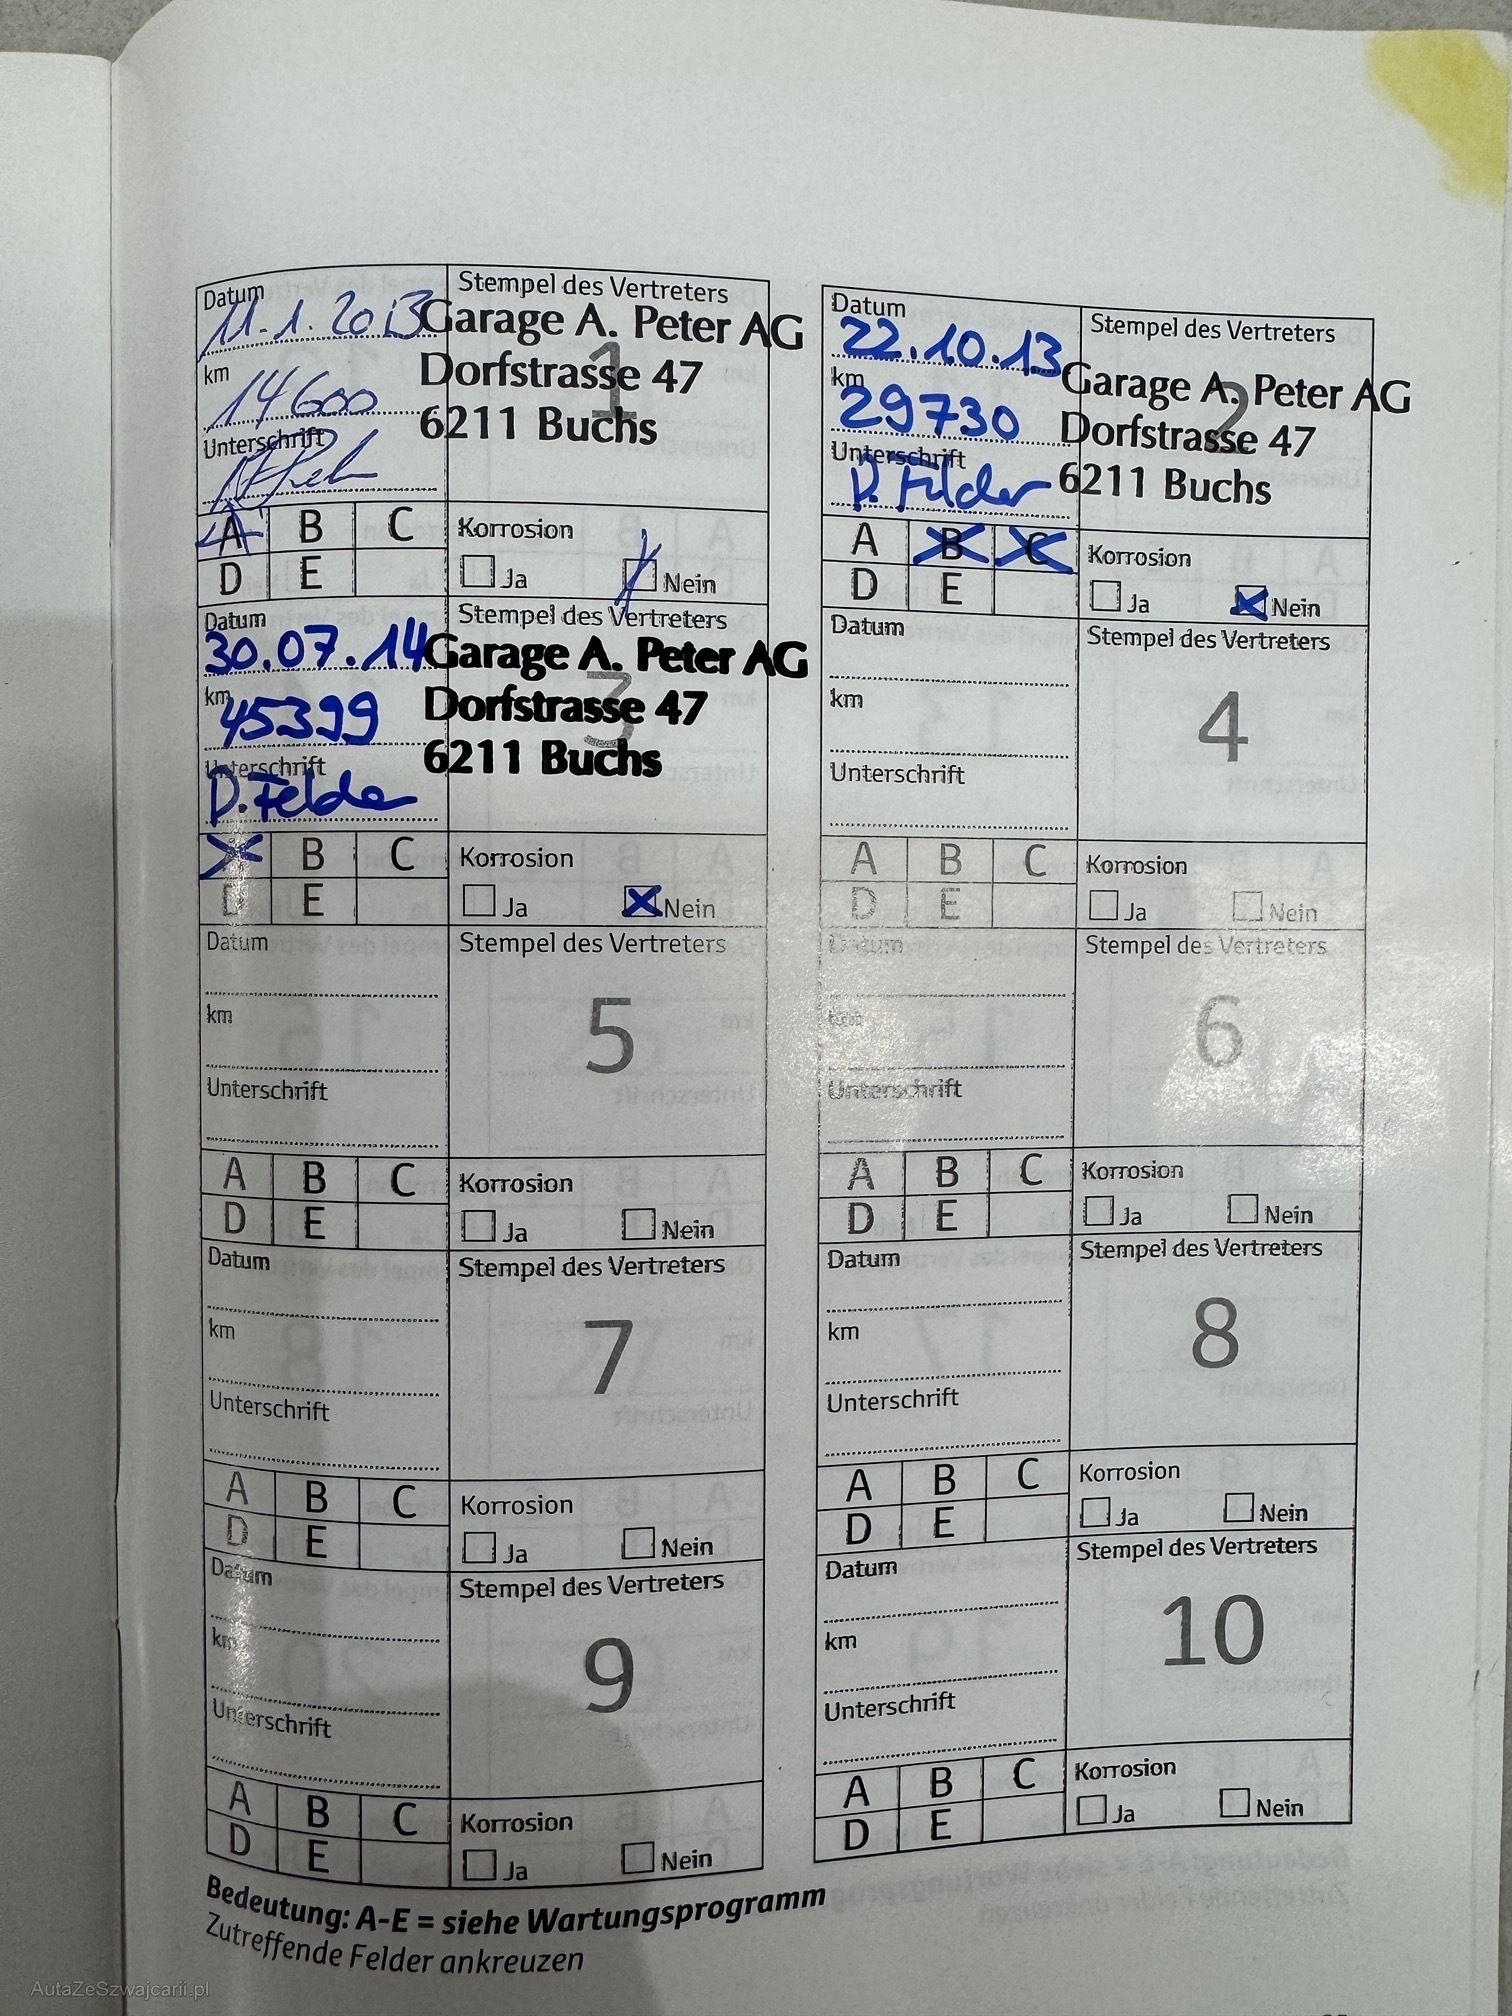 Datum
11.1.2013
km
14600
Unterschrift
Stempel des Vertreters
1
Garage A. Peter AG
Dorfstrasse 47
6211 Buchs
A B C
D E
Korrosion
Ja Nein
Datum
22.10.13
km
29730
Unterschrift
D. Felder
Stempel des Vertreters
2
Garage A. Peter AG
Dorfstrasse 47
6211 Buchs
A B C
D E
Korrosion
Ja Nein
Datum
30.07.14
km
45399
Unterschrift
D. Felder
Stempel des Vertreters
3
Garage A. Peter AG
Dorfstrasse 47
6211 Buchs
B C
D E
Korrosion
Ja Nein
Datum
km
Unterschrift
Stempel des Vertreters
4
A B C
D E
Korrosion
Ja Nein
Datum
km
Unterschrift
Stempel des Vertreters
5
A B C
D E
Korrosion
Ja Nein
Datum
km
Unterschrift
Stempel des Vertreters
6
A B C
D E
Korrosion
Ja Nein
Datum
km
Unterschrift
Stempel des Vertreters
7
A B C
D E
Korrosion
Ja Nein
Datum
km
Unterschrift
Stempel des Vertreters
8
A B C
D E
Korrosion
Ja Nein
Datum
km
Unterschrift
Stempel des Vertreters
9
A B C
D E
Korrosion
Ja Nein
Datum
km
Unterschrift
Stempel des Vertreters
10
A B C
D E
Korrosion
Ja Nein
Bedeutung: A-E = siehe Wartungsprogramm
Zutreffende Felder ankreuzen
AutaZeSzwajcarii.pl